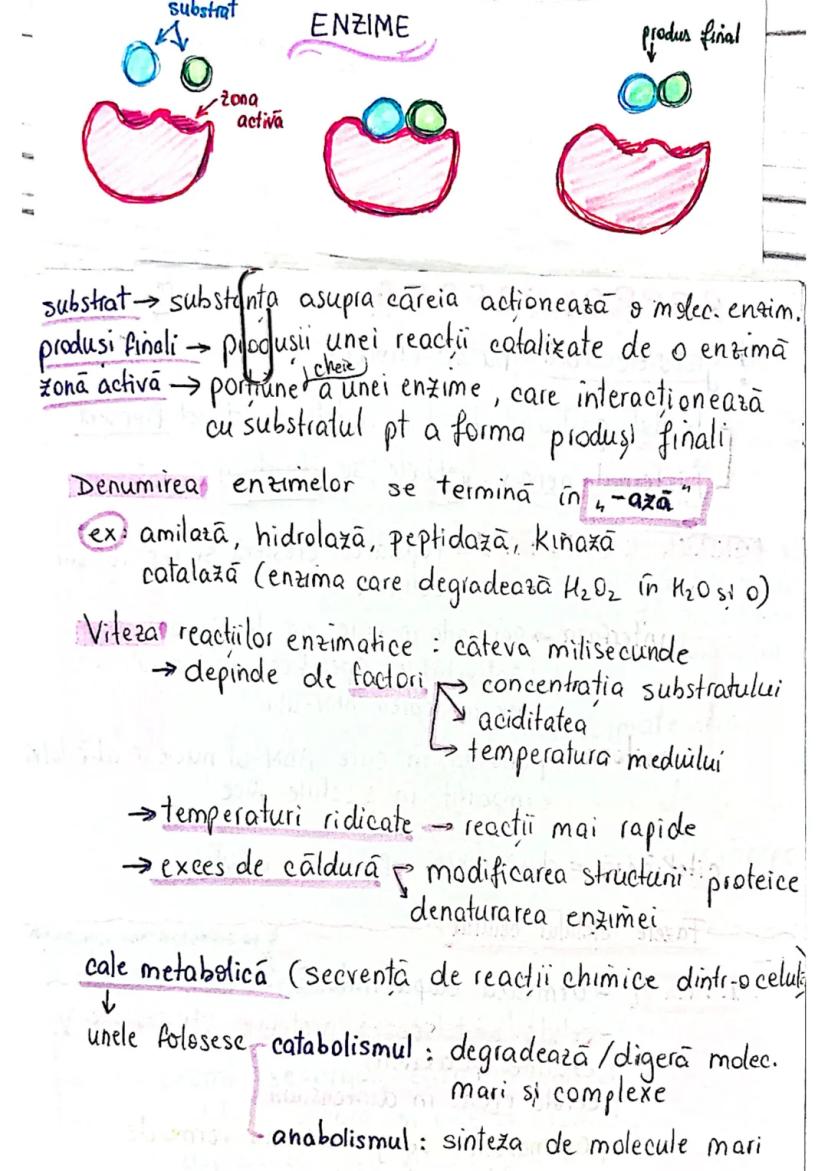 substrat
ENZIME
produs final
zona
activă
substrat → substanța asupra căreia acționează o molec. enzim.
produși finali → produșii unei reacții catalizate de o enzimă
cheie
zonă activă → porțiune a unei enzime, care interacționează
cu substratul pt a forma produși finali
Denumirea enzimelor se termină în „-ază"
ex: amilază, hidrolază, peptidază, kinază
catalază (enzima care degradează H₂O₂ în H₂O și O)
Viteza reacțiilor enzimatice : câteva milisecunde
→ depinde de factori → concentrația substratului
↘ aciditatea
→ temperatura mediului
→ temperaturi ridicate → reacții mai rapide
→ exces de căldură modificarea structurii proteice
denaturarea enzimei
cale metabolică (secvență de reacții chimice dintr-o celulă
↓
unele folosesc catabolismul : degradează/digeră molec.
mari și complexe
anabolismul : sinteza de molecule mari